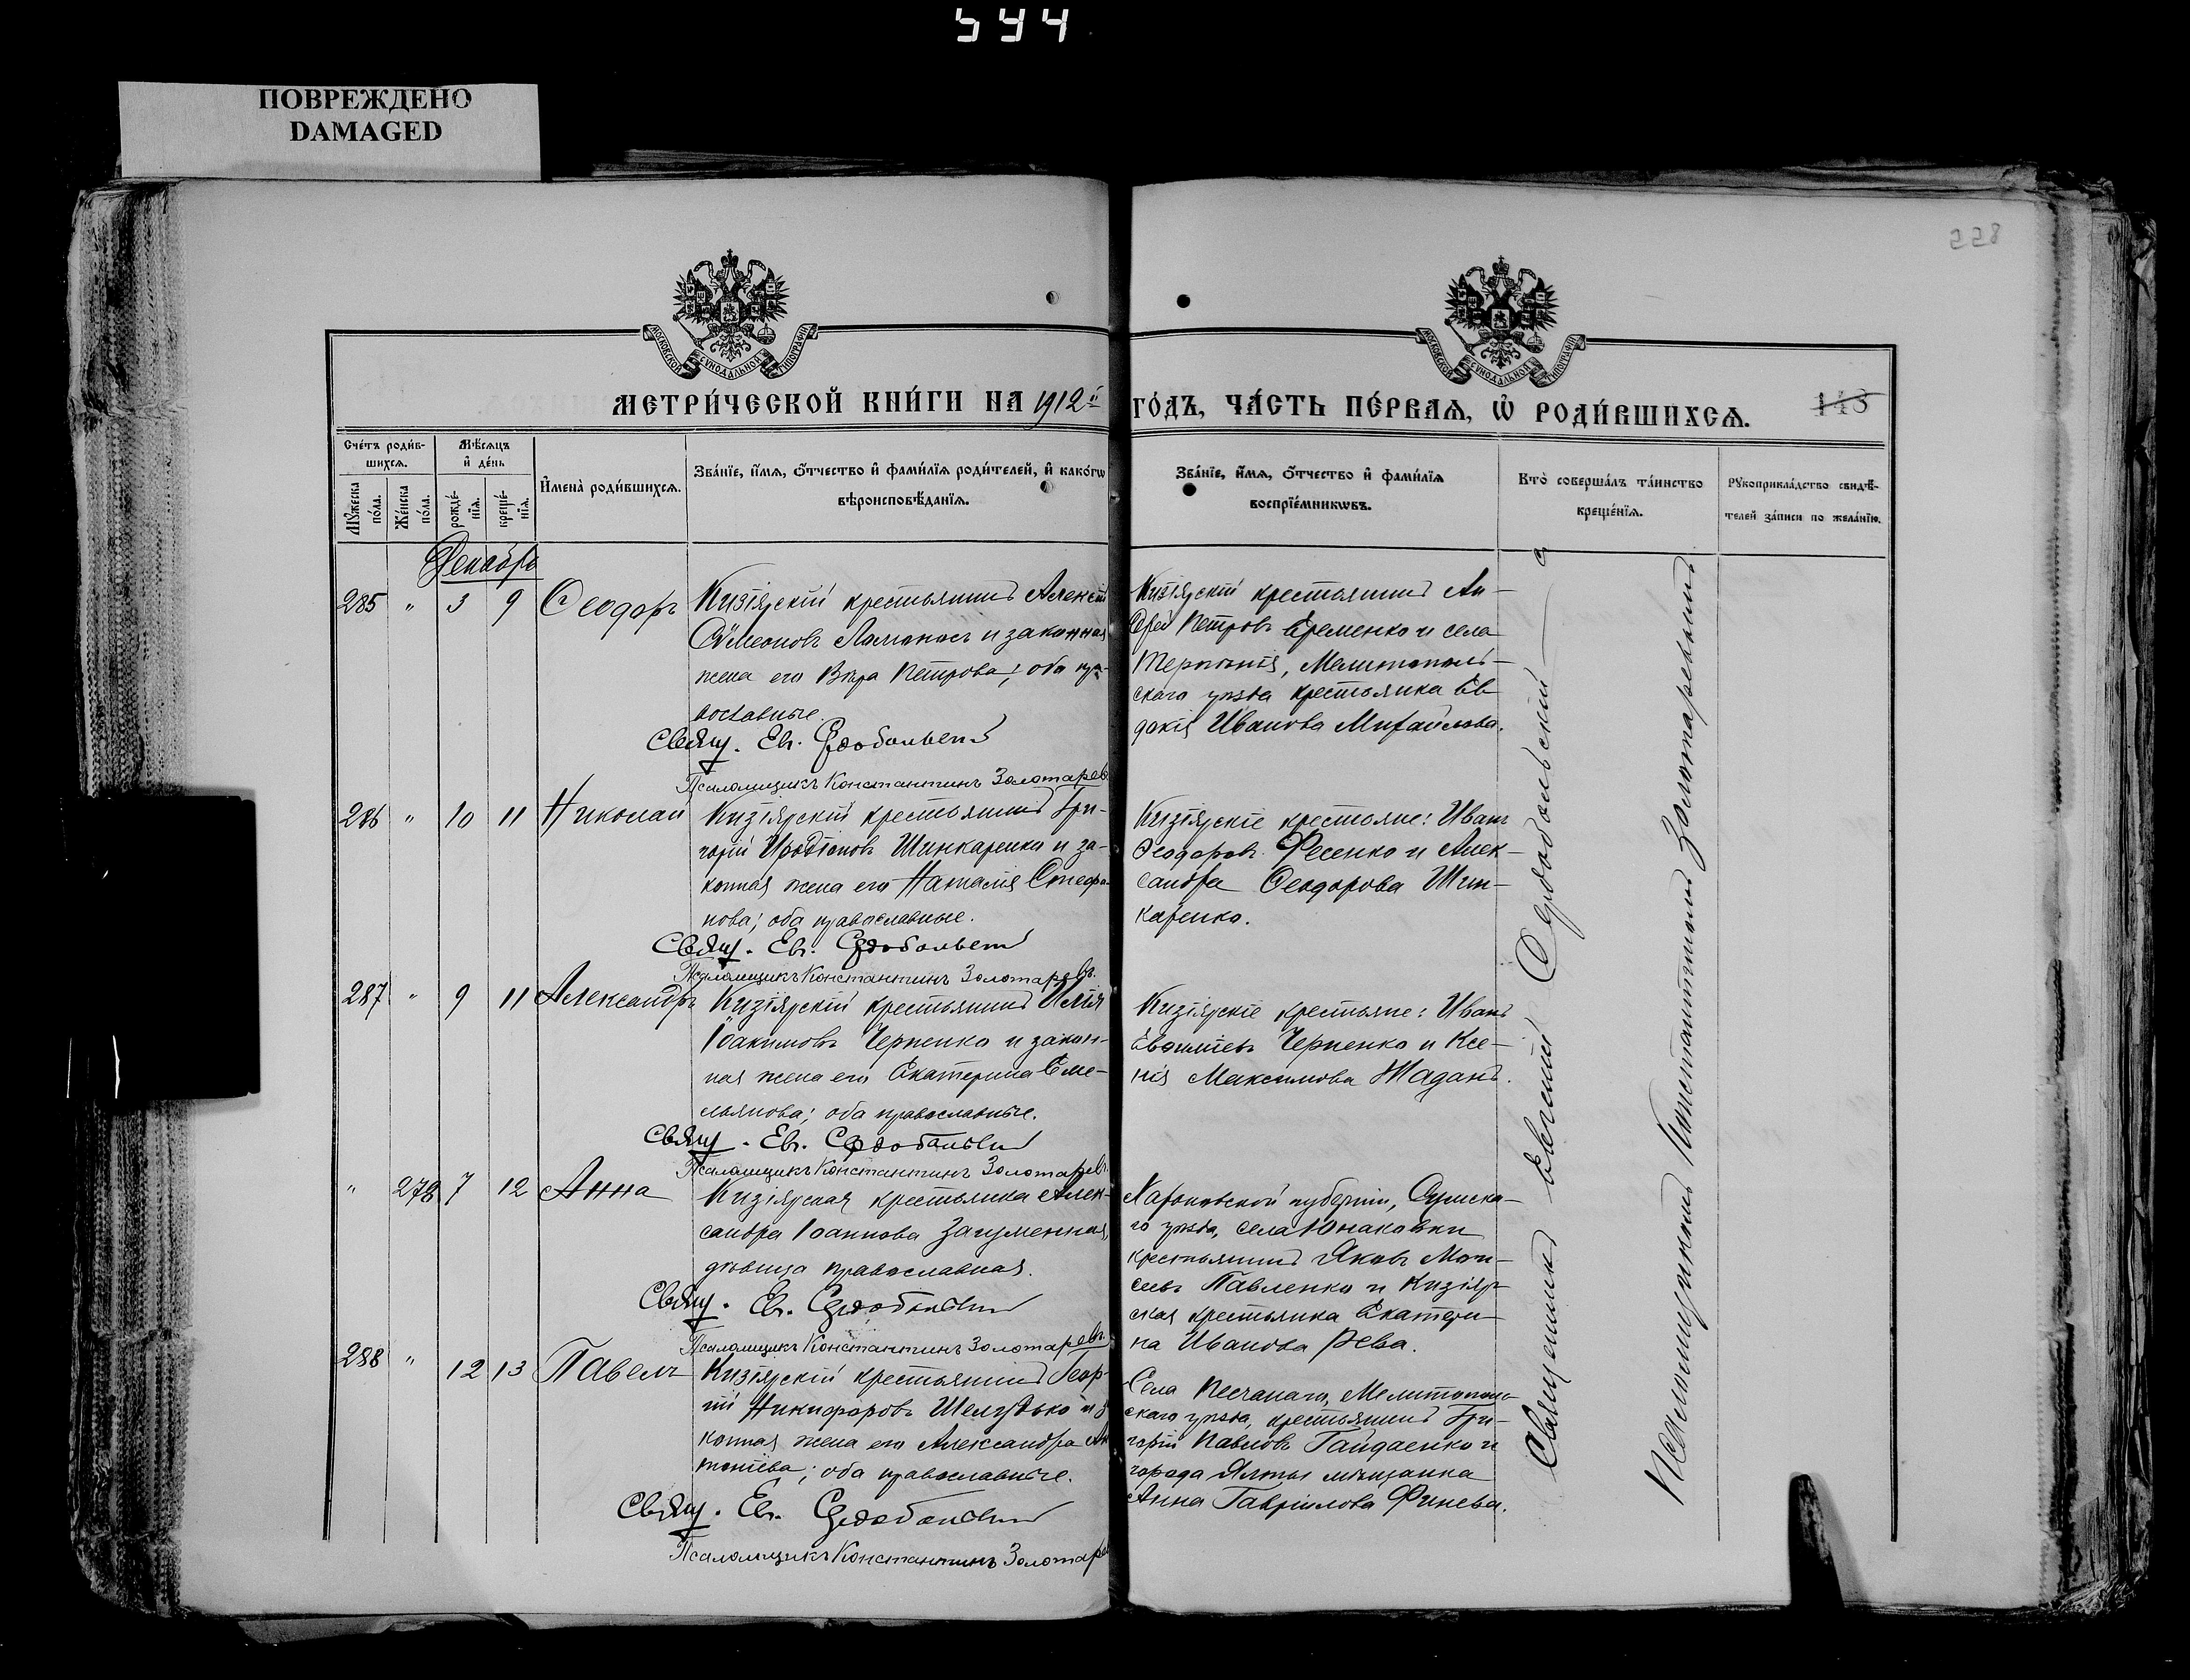 544
ПОВРЕЖДЕНО
DAMAGED
228
МОСКОВСКОЙ СѴНОДАЛЬНОЙ ТИПОГРАФІИ
МОСКОВСКОЙ СѴНОДАЛЬНОЙ ТИПОГРАФІИ
МЕТРИ́ЧЕСКОЙ КНИ́ГИ НА 1912й
ГО́ДЪ, ЧА́СТЬ ПЕ́РВАѦ, Ѡ҆ РОДИ́ВШИХСѦ.
143
Сче́тъ роди́в-
шихсѧ.
Мѣ́сѧцъ
и҆ де́нь
Му́жеска по́ла.
Же́нска по́ла.
рожде́-
нїѧ.
креще́-
нїѧ.
И҆мена̀ роди́вшихсѧ.
Зва́нїе, и҆́мѧ, о҆́тчество и҆ фами́лїѧ роди́телей, и҆ како́гѡ
вѣроисповѣ́данїѧ.
Зва́нїе, и҆́мѧ, о҆́тчество и҆ фами́лїѧ
воспрїе́мникѡвъ.
Кто̀ соверша́лъ та́инство
креще́нїѧ.
Рꙋкоприкла́дство свидѣ́-
телей за́писи по жела́нїю.
Декабрь
285 " 3 9 Ѳеодоръ
Кизіярскій крестьянинъ Алексій
Сѵмеоновъ и законная
жена его Вѣра Петрова; оба пра-
вославные.
Свящ. Ев. Сердобольскій
Псаломщикъ Константинъ Золотаревъ
Кизіярскій крестьянинъ Ан-
дрей Петровъ Еременко и села
Терпѣнія, Мелитополь-
скаго уѣзда крестьянка Ев-
докія Иванова Михайлова.
286 " 10 11 Николай
Кизіярскій крестьянинъ Гри-
горій Иродіоновъ Шинкаренко и за-
конная жена его Наталія Стефа-
нова; оба православные.
Свящ. Ев. Сердобольскій
Псаломщикъ Константинъ Золотаревъ.
Кизіярскіе крестьяне: Иванъ
Ѳеодоровъ Фесенко и Алек-
сандра Ѳеодорова Шин-
каренко.
287 " 9 11 Александръ
Кизіярскій крестьянинъ Илія
Іоакимовъ Черненко и закон-
ная жена его Екатерина Еме-
льянова; оба православные.
Свящ. Ев. Сердобольскій
Псаломщикъ Константинъ Золотаревъ.
Кизіярскіе крестьяне: Иванъ
Евѳиміевъ Черненко и Ксе-
нія Максимова Жаданъ.
" 278 7 12 Анна
Кизіярская крестьянка Алек-
сандра Іоаннова Загуменная,
дѣвица православная.
Свящ. Ев. Сердобольскій
Псаломщикъ Константинъ Золотаревъ.
Харьковской губерніи, Сумска-
го уѣзда, села Юнаковки
крестьянинъ Яковъ Мои-
сеевъ Павленко и Кизіяр-
ская крестьянка Екатери-
на Иванова Рева.
288 " 12 13 Павелъ
Кизіярскій крестьянинъ Геор-
гій Никифоровъ Шелудько и за-
конная жена его Александра Ан-
тоніева; оба православные.
Свящ. Ев. Сердобольскій
Псаломщикъ Константинъ Золотаре
Села Песчанаго, Мелитополь-
скаго уѣзда, крестьянинъ Гри-
горій Павловъ Гайдаенко и
города Ялты мѣщанка
Анна Гавріилова Финева.
Священникъ Евгеній Сердобольскій
Псаломщикъ Константинъ Золотаревъ